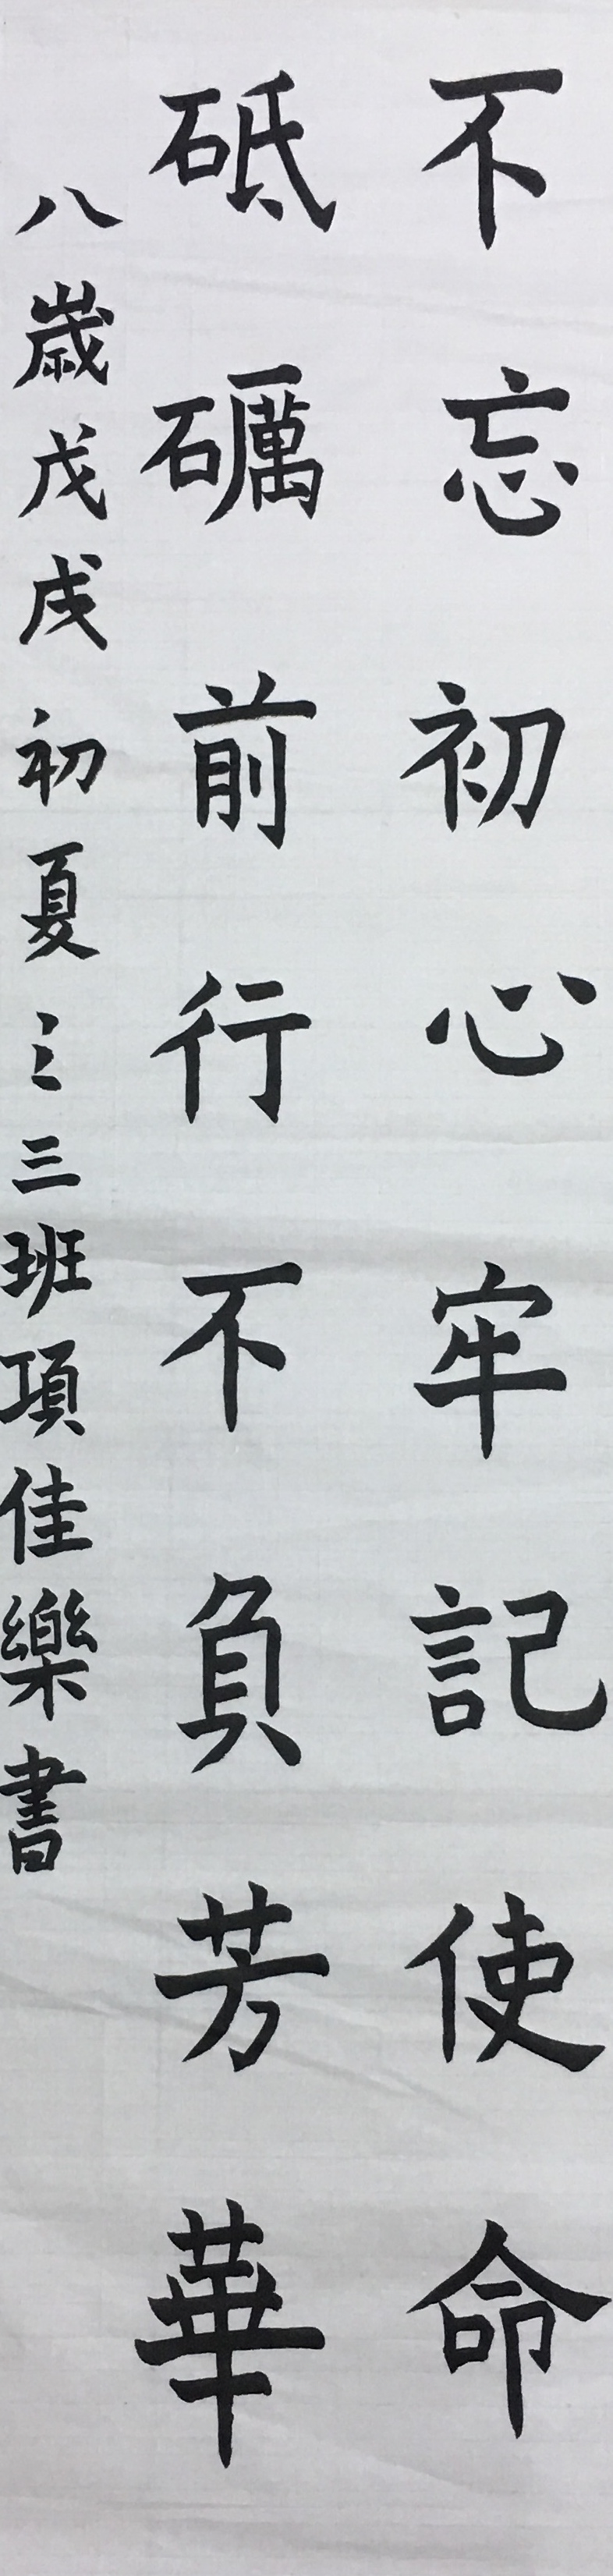 不忘初心牢記使命
砥礪前行不負芳華
八嵗戊戌初夏三三班項佳樂書